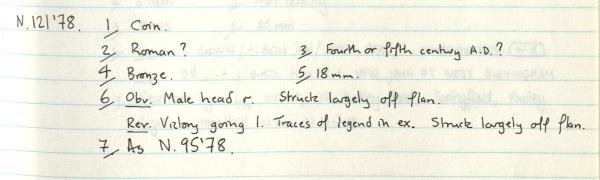 N.121'78. 1, Coin.
2, Roman? 3, Fourth or fifth century A.D.?
4, Bronze. 5, 18mm.
6, Obv. Male head r. Struck largely off flan.
Rev. Victory going l. Traces of legend in ex. Struck largely off flan.
7, As N.95'78.